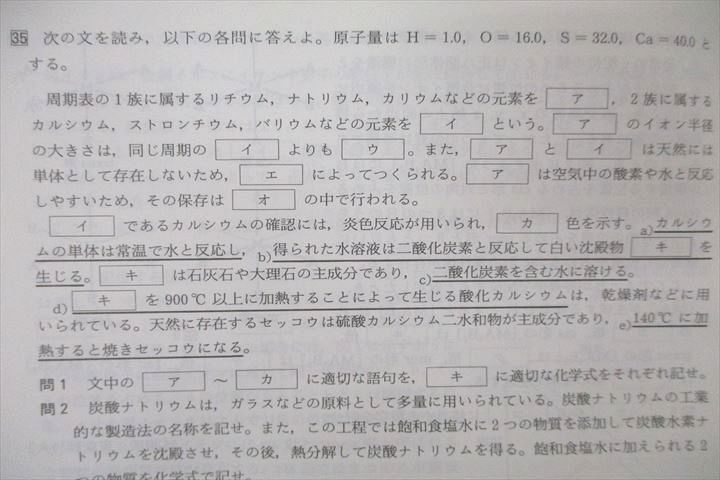 35 次の文を読み,以下の各問に答えよ。原子量は H = 1.0, O = 16.0, S = 32.0, Ca = 40.0 と
する。
周期表の1族に属するリチウム,ナトリウム,カリウムなどの元素を ア , 2族に属する
カルシウム,ストロンチウム,バリウムなどの元素を イ という。 ア のイオン半径
の大きさは,同じ周期の イ よりも ウ 。また, ア と イ は天然には
単体として存在しないため, エ によってつくられる。 ア は空気中の酸素や水と反応
しやすいため,その保存は オ の中で行われる。
イ であるカルシウムの確認には,炎色反応が用いられ, カ 色を示す。a)カルシウ
ムの単体は常温で水と反応し,b)得られた水溶液は二酸化炭素と反応して白い沈殿物 キ を
生じる。 キ は石灰石や大理石の主成分であり,c)二酸化炭素を含む水に溶ける。
d) キ を900℃以上に加熱することによって生じる酸化カルシウムは,乾燥剤などに用
いられている。天然に存在するセッコウは硫酸カルシウム二水和物が主成分であり,e)140℃に加
熱すると焼きセッコウになる。
問1 文中の ア ~ カ に適切な語句を, キ に適切な化学式をそれぞれ記せ。
問2 炭酸ナトリウムは,ガラスなどの原料として多量に用いられている。炭酸ナトリウムの工業
的な製造法の名称を記せ。また,この工程では飽和食塩水に2つの物質を添加して炭酸水素ナ
トリウムを沈殿させ,その後,熱分解して炭酸ナトリウムを得る。飽和食塩水に加えられる2
つの物質を化学式で記せ。